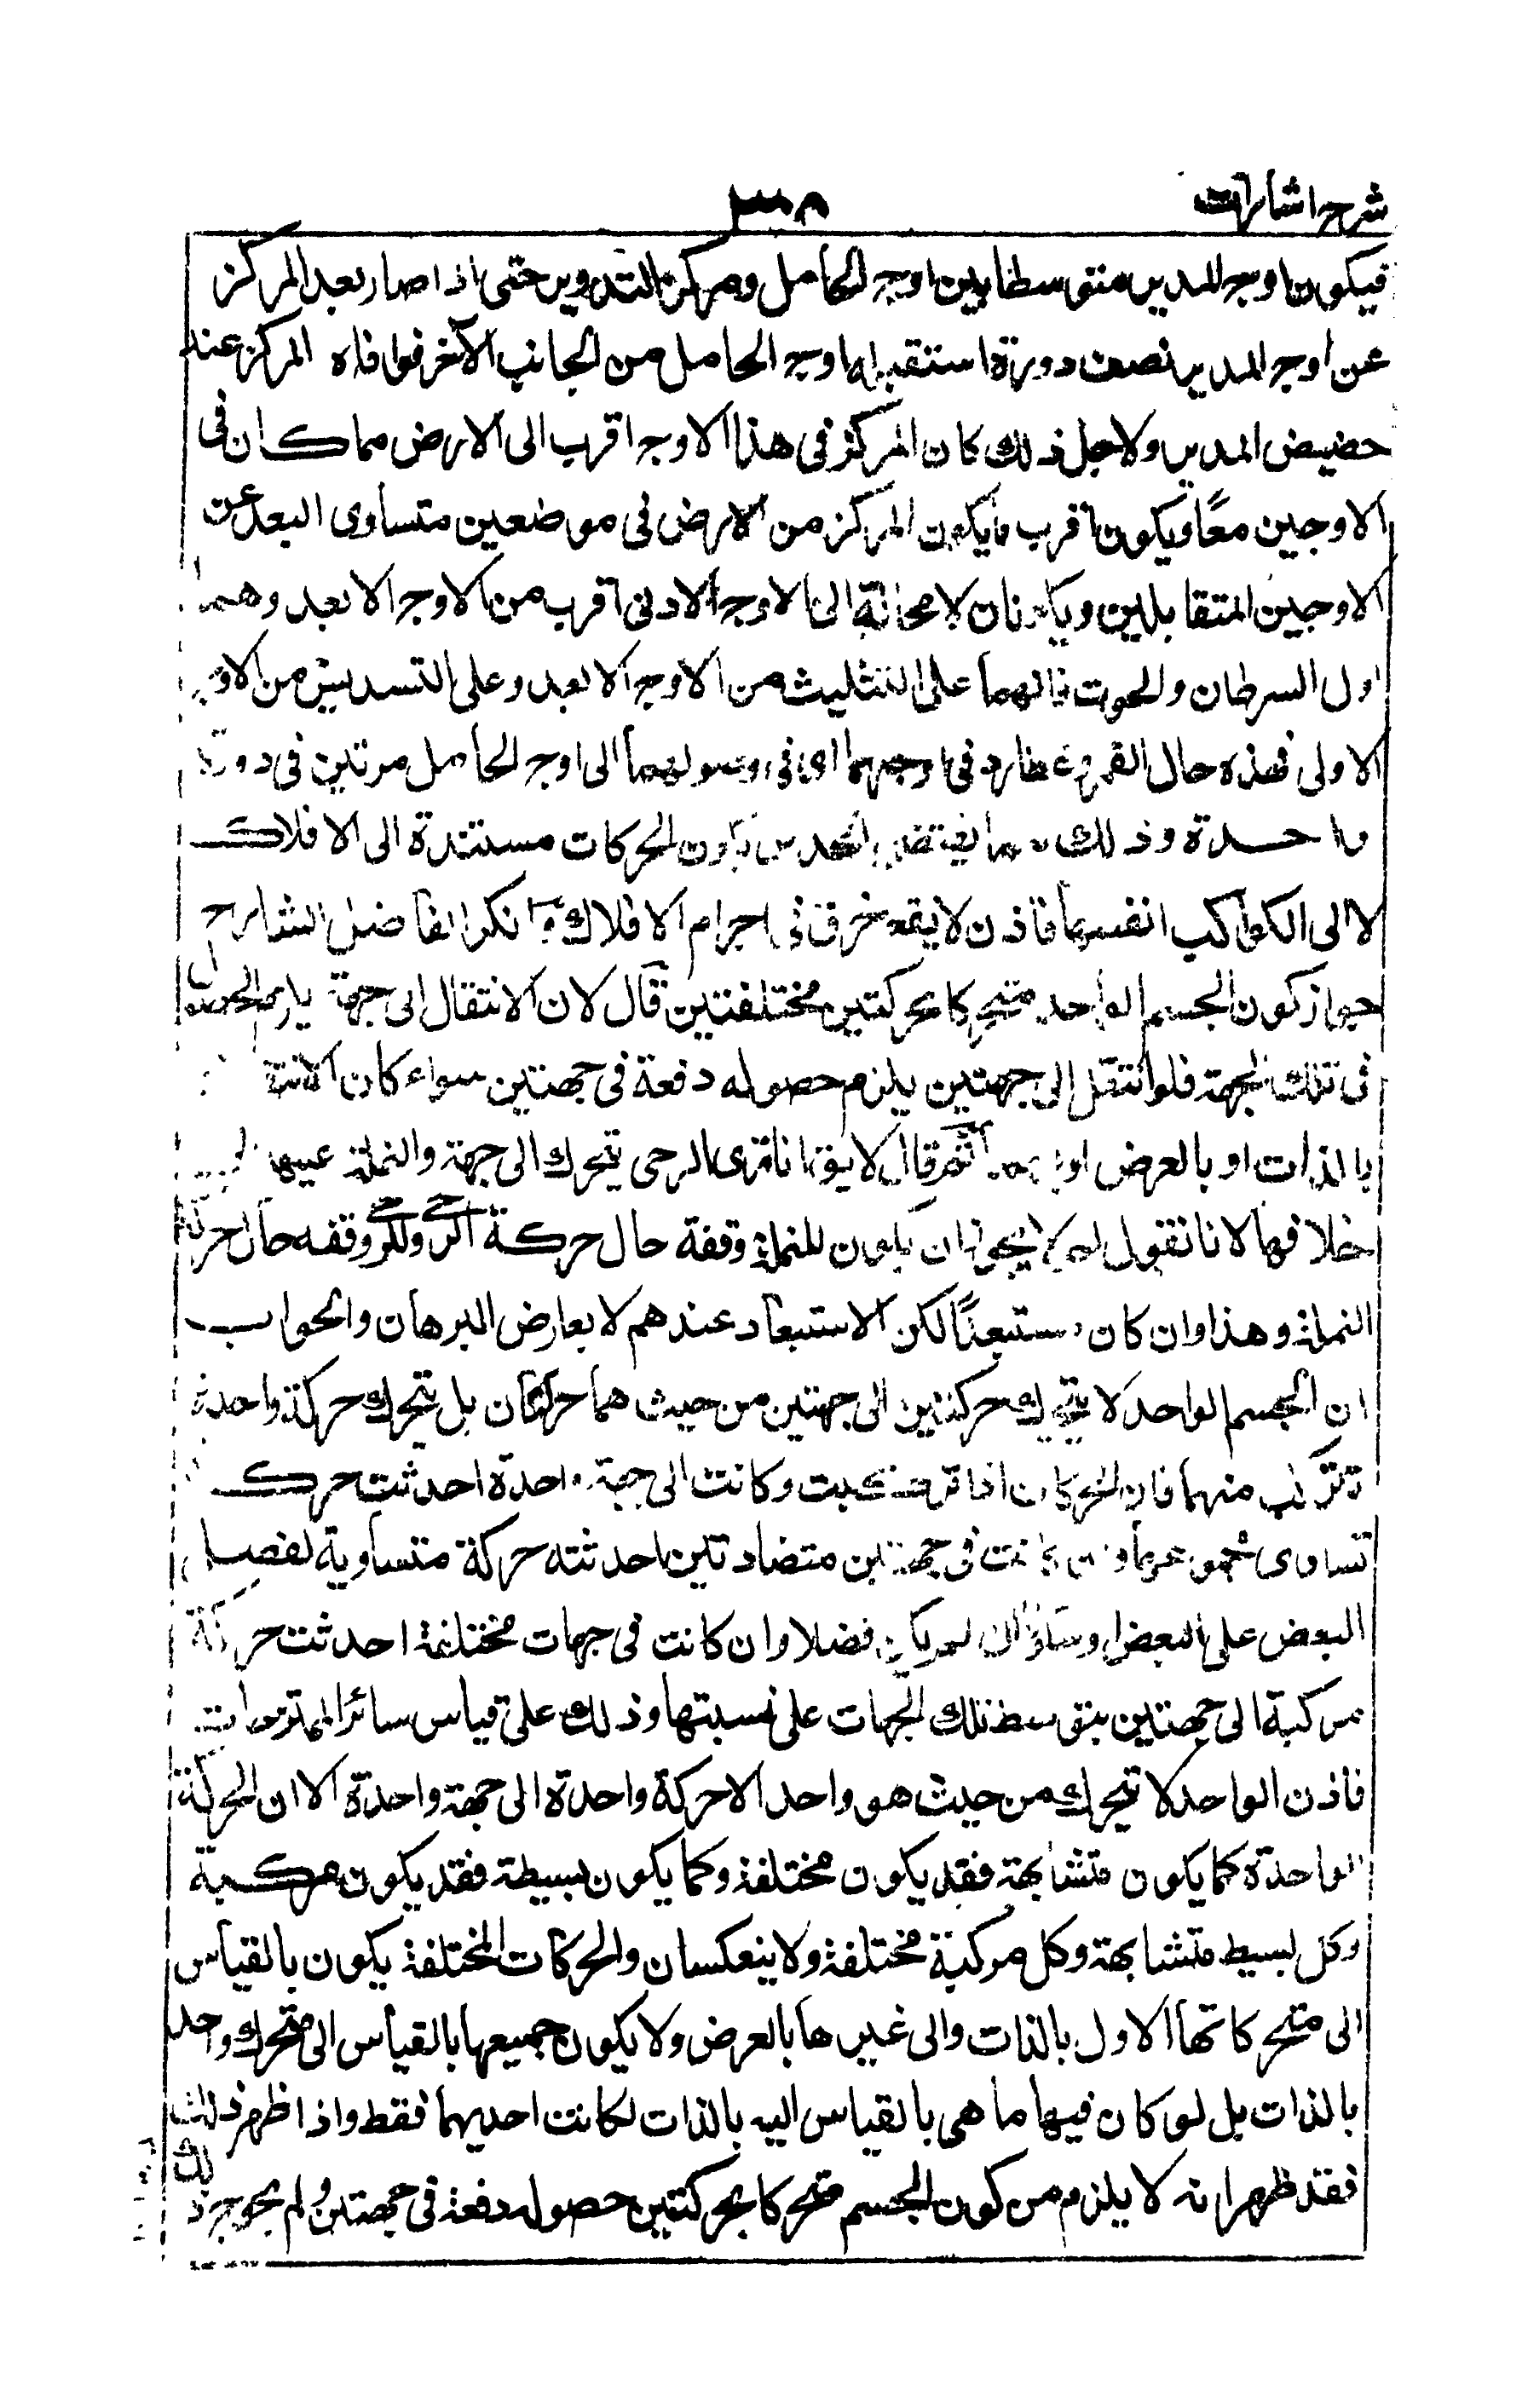 شرح اشارات
فيكون اوج المدير متوسطا بين اوج الحامل ومركز التدوير حتى اذا صار بعد المركز
عن اوج المدير نصف دورة استقبله اوج الحامل من الجانب الآخر فوافاه المركز عند
حضيض المدير ولاجل ذلك كان المركز فى هذا الاوج اقرب الى الارض مما كان فى
الاوجين معًا ويكون اقرب ما يكون المركز من الارض فى موضعين متساوى البعد عن
الاوجين المتقابلين ويكونان لا محالة الى الاوج الادنى اقرب من الاوج الابعد وهما
اول السرطان والحوت فانهما على التثليث من الاوج الابعد وعلى التسديس من الاوج
الاولى فهذه حال القمر وعطارد فى اوجهما اى فى وصولهما الى اوج الحامل مرتين فى دورة
واحدة وذلك مما يقتضى الحدس بكون الحركات مستندة الى الافلاك
لا الى الكواكب انفسها فاذن لا يقع خرق فى اجرام الافلاك وانكر الفاضل الشارح
جواز كون الجسم الواحد متحركا بحركتين مختلفتين قال لان الانتقال الى جهة يلزم الحصول
فى تلك الجهة فلو انتقل الى جهتين يلزم حصوله دفعة فى جهتين سواء كان
بالذات او بالعرض او ثم قال لا يقا نا نرى الرحى يتحرك الى جهة والنملة عليها
خلافها لانا نقول لم لا يجوز ان يكون للنملة وقفة حال حركة الرحى وللرحى وقفه حال حركة
النملة وهذا وان كان مستبعدًا لكن الاستبعاد عندهم لا يعارض البرهان والجواب
ان الجسم الواحد لا يتحرك حركتين الى جهتين من حيث هما حركتان بل يتحرك حركة واحدة
تتركب منهما فان الحركات اذا تركبت وكانت الى جهة واحدة احدثت حركة
تساوى مجموعها وان كانت فى جهتين متضادتين احدثته حركة متساوية لفضل
البعض على البعض او سكونا ان لم يكن فضلا وان كانت فى جهات مختلفة احدثت حركة
مركبة الى جهتين بتوسط تلك الجهات على نسبتها وذلك على قياس سائر الممتزجات
فاذن الواحد لا تتحرك من حيث هو واحد الا حركة واحدة الى جهة واحدة الا ان الحركة
الواحدة كما يكون متشابهة فقد يكون مختلفة وكما يكون بسيطة فقد يكون مركبة
وكل بسيط متشابهة وكل مركبة مختلفة ولا ينعكسان والحركات المختلفة يكون بالقياس
الى متحركاتها الاول بالذات والى غيرها بالعرض ولا يكون جميعها بالقياس الى متحرك واحد
بالذات بل لو كان فيها ما هى بالقياس اليه بالذات لكانت احديهما فقط واذا ظهر ذلك
فقد ظهر انه لا يلزم من كون الجسم متحركا بحركتين حصوله دفعة فى جهتين ولم يحوج ذلك